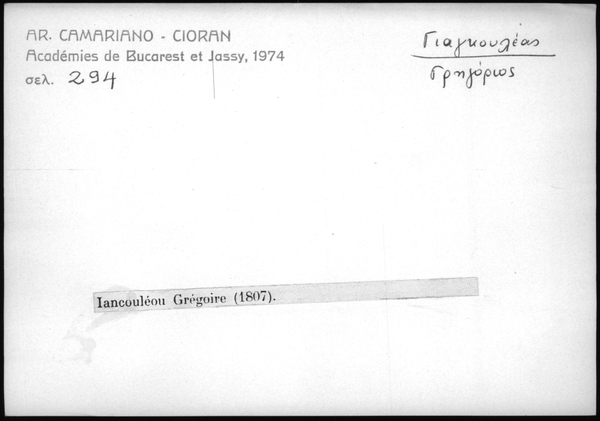 AR. CAMARIANO - CIORAN
Académies de Bucarest et Jassy, 1974
σελ. 294
Γιαγκουλέας
Γρηγόριος
Iancouléou Grégoire (1807).